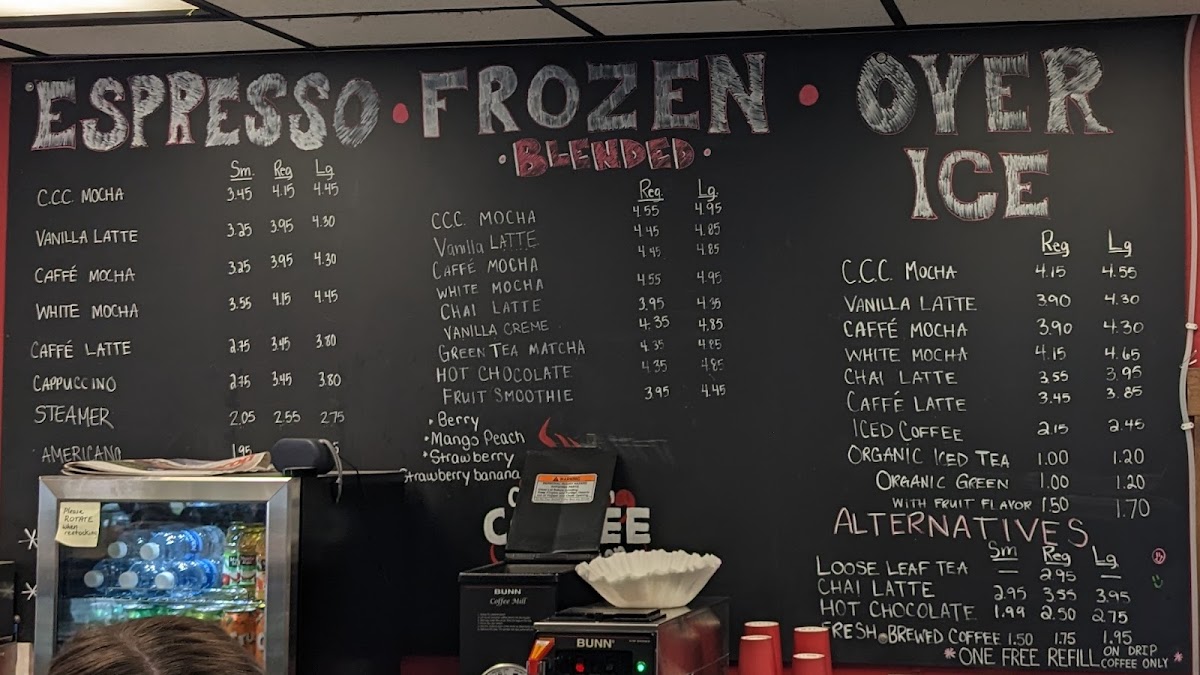 ESPRESSO · FROZEN · OVER ICE
Sm. Reg Lg.
C.C.C. MOCHA 3.45 4.15 4.45
VANILLA LATTE 3.25 3.95 4.30
CAFFÉ MOCHA 3.25 3.95 4.30
WHITE MOCHA 3.55 4.15 4.45
CAFFÉ LATTE 2.75 3.45 3.80
CAPPUCCINO 2.75 3.45 3.80
STEAMER 2.05 2.55 2.75
AMERICANO 1.95
· BLENDED ·
Reg. Lg.
C.C.C. MOCHA 4.55 4.95
Vanilla LATTE 4.45 4.85
CAFFÉ MOCHA 4.45 4.85
WHITE MOCHA 4.55 4.95
CHAI LATTE 3.95 4.35
VANILLA CREME 4.35 4.85
GREEN TEA MATCHA 4.35 4.85
HOT CHOCOLATE 4.35 4.85
FRUIT SMOOTHIE 3.95 4.45
• Berry
• Mango Peach
• Strawberry
Strawberry banana
Reg Lg
C.C.C. MOCHA 4.15 4.55
VANILLA LATTE 3.90 4.30
CAFFÉ MOCHA 3.90 4.30
WHITE MOCHA 4.15 4.65
CHAI LATTE 3.55 3.95
CAFFÉ LATTE 3.45 3.85
ICED COFFEE 2.15 2.45
ORGANIC ICED TEA 1.00 1.20
ORGANIC GREEN 1.00 1.20
WITH FRUIT FLAVOR 1.50 1.70
ALTERNATIVES
Sm Reg Lg
LOOSE LEAF TEA — 2.95 —
CHAI LATTE 2.95 3.55 3.95
HOT CHOCOLATE 1.99 2.50 2.75
FRESH BREWED COFFEE 1.50 1.75 1.95
*ONE FREE REFILL ON DRIP COFFEE ONLY *
Please
ROTATE
when
restocking
WARNING
BUNN
Coffee Mill
BUNN